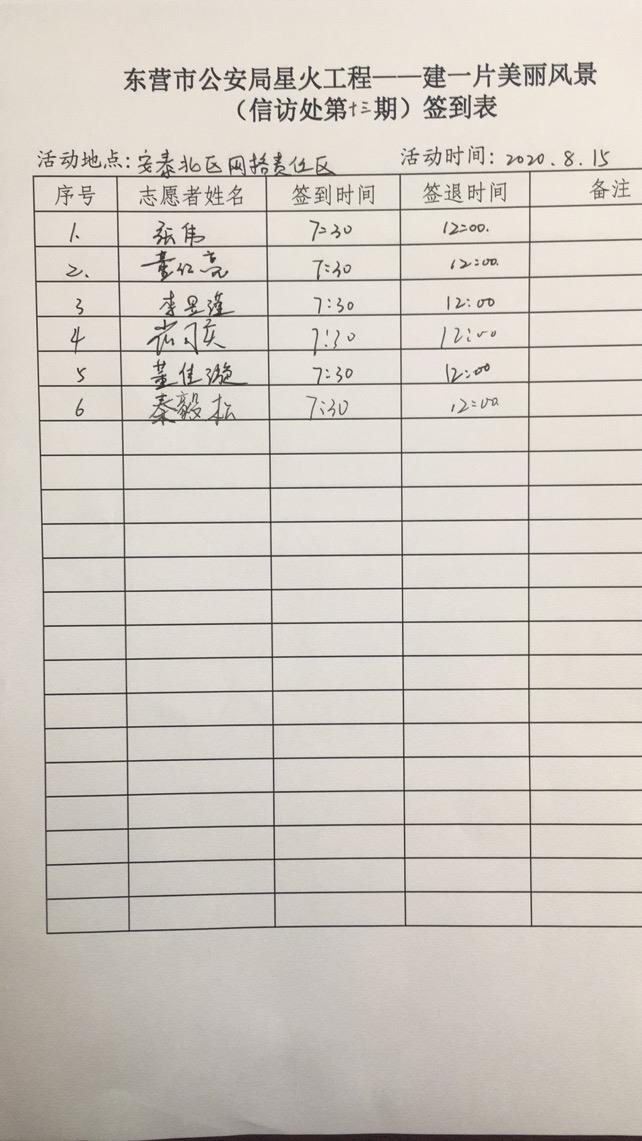 东营市公安局星火工程——建一片美丽风景
（信访处第十三期）签到表
活动地点：安泰北区网格责任区 活动时间：2020.8.15
序号 志愿者姓名 签到时间 签退时间 备注
1. 张伟 7:30 12:00.
2. 董仁亮 7:30 12:00
3 李昱瑾 7:30 12:00
4 7:30 12:00
5 董佳璇 7:30 12:00
6 秦毅松 7:30 12:00